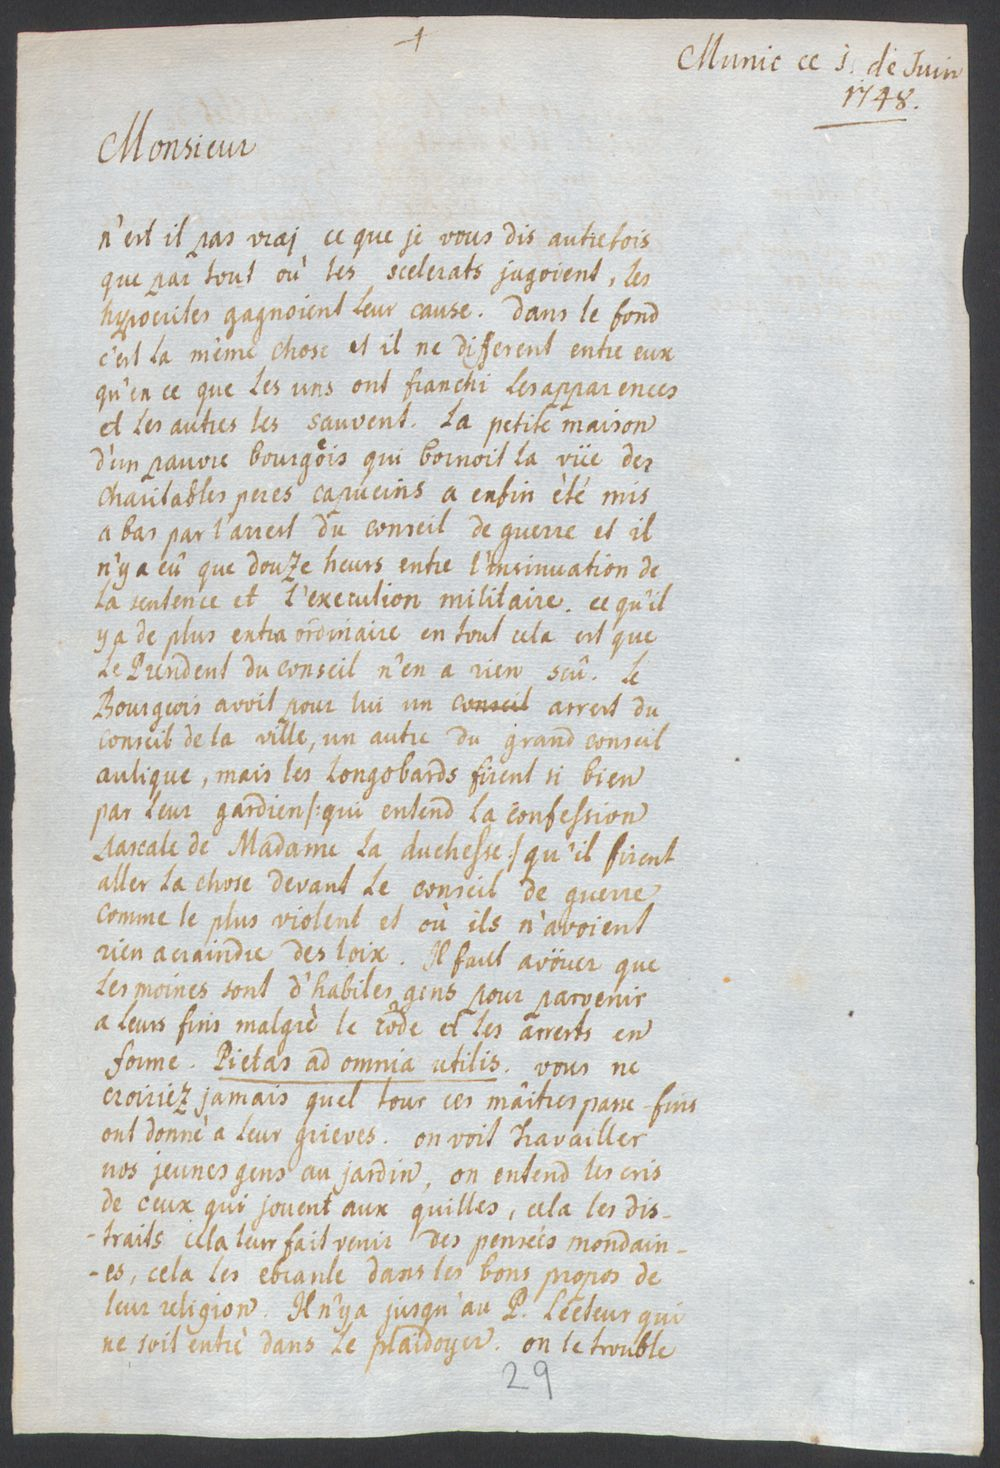 Munic ce 1. de Juin
1748.
Monsieur
n'est il pas vraj ce que je vous dis autrefois
que par tout où les scelerats jugoient, les
hypocrites gagnoient leur cause. Dans le fond
c'est la même chose et il ne different entre eux
qu'en ce que les uns ont franchi les apparences
et les autres les sauvent. La petite maison
d'un pauvre bourgeois qui bornoit la vüe des
charitables peres capucins a enfin èté mis
a bas par l'arrest du conseil de guerre et il
n'y a eû que douze heurs entre l'insinuation de
la sentence et l'execution militaire. ce qu'il
y a de plus extraordinaire en tout cela est que
le President du conseil n'en a rien scû. Le
Bourgeois avoit pour lui un conseil arrest du
conseil de la ville, un autre du grand conseil
aulique, mais les Longobards firent si bien
par leur gardien /: qui entend la confession
pascale de Madame la duchesse :/ qu'il firent
aller la chose devant le conseil de guerre
comme le plus violent et où ils n'avoient
rien a craindre des loix. Il faut avöuer que
les moines sont d'habiles gens pour parvenir
a leurs fins malgrè le code et les arrests en
forme. Pietas ad omnia utilis. vous ne
croiriéz jamais quel tour ces mâitres passe-fins
ont donnè a leur grieves. on voit travailler
nos jeunes gens au jardin, on entend les cris
de ceux qui jouent aux quilles, cela les dis-
-traits cela leur fait venir des pensées mondain-
-es, cela les ebranle dans les bons propos de
leur religion. Il n'y a jusqu'au P. Lecteur qui
ne soit entrè dans le plaidoyer. on le trouble
29